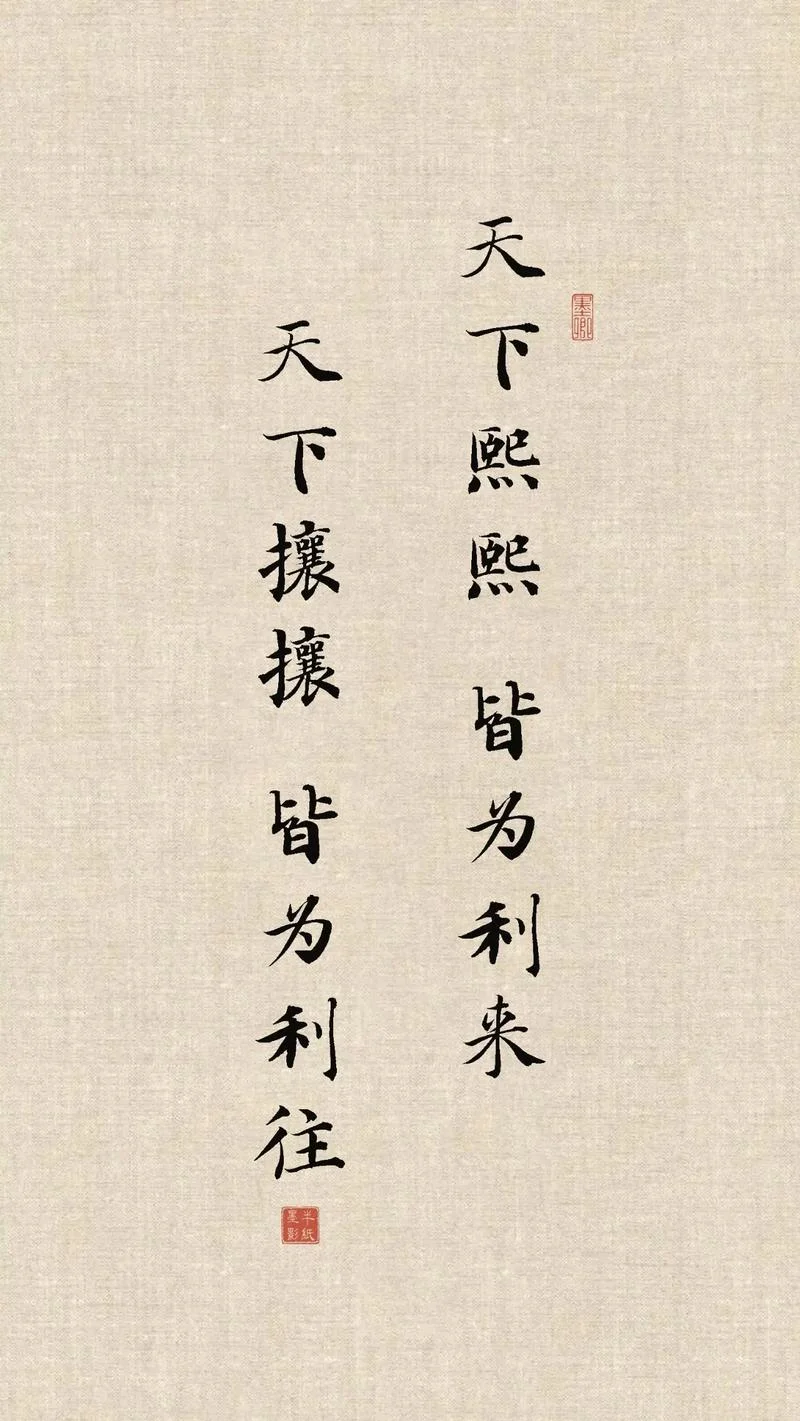 天下熙熙 皆为利来
天下攘攘 皆为利往
墨卿
半纸墨影